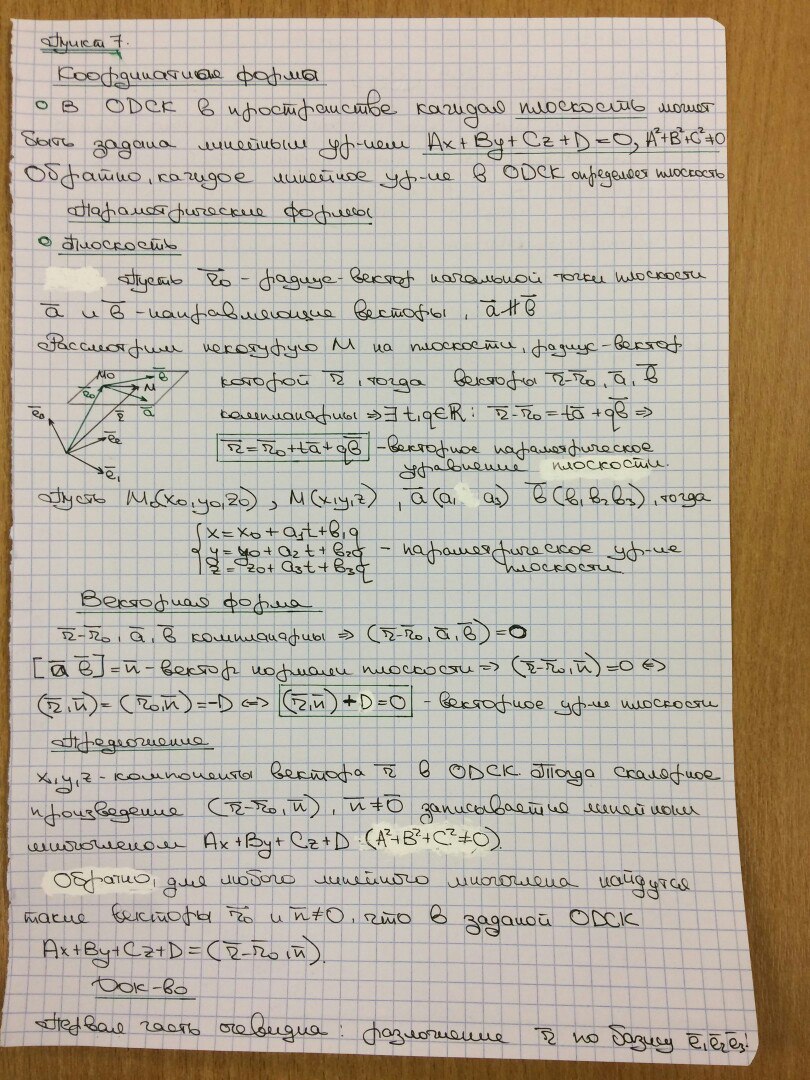 Пункт 7.
Координатные формы
В ОДСК в пространстве каждая плоскость может
быть задана линейным ур-нием Ax + By + Cz + D = 0, A²+B²+C²≠0
Обратно, каждое линейное ур-ие в ОДСК определяет плоскость
Параметрические формы
Плоскость
Пусть r̄₀ - радиус-вектор начальной точки плоскости
ā и b̄ - направляющие векторы, ā ∦ b̄
Рассмотрим некоторую M на плоскости, радиус-вектор
которой r̄, тогда векторы r̄-r̄₀, ā, b̄
компланарны ⇒ ∃ t,q∈ℝ: r̄-r̄₀ = tā + qb̄ ⇒
r̄ = r̄₀ + tā + qb̄ - векторное параметрическое
уравнение плоскости.
M₀ b̄ M r̄₀ ā r̄ ē₂ ē₁
Пусть M₀(x₀,y₀,z₀), M(x,y,z), ā(a₁ a₃) b̄(b₁ b₂ b₃), тогда
{ x = x₀ + a₁t + b₁q
y = y₀ + a₂t + b₂q - параметрическое ур-ие
z = z₀ + a₃t + b₃q плоскости
Векторная форма
r̄-r̄₀, ā, b̄ компланарны ⇒ (r̄-r̄₀, ā, b̄) = 0
[ā b̄] = n̄ - вектор нормали плоскости ⇒ (r̄-r̄₀, n̄) = 0 ⇔
(r̄, n̄) = (r̄₀, n̄) = -D ⇔ (r̄, n̄) + D = 0 - векторное ур-ие плоскости
Предложение
x, y, z - компоненты вектора r̄ в ОДСК Тогда скалярное
произведение (r̄-r̄₀, n̄), n̄≠0̄ записывается линейным
многочленом Ax + By + Cz + D (A²+B²+C²≠0).
Обратно, для любого линейного многочлена найдутся
такие векторы r̄₀ и n̄≠0, что в заданой ОДСК
Ax + By + Cz + D = (r̄-r̄₀, n̄).
Док-во
Первая часть очевидна: разложение r̄ по базису ē₁ ē₂ ē₃: